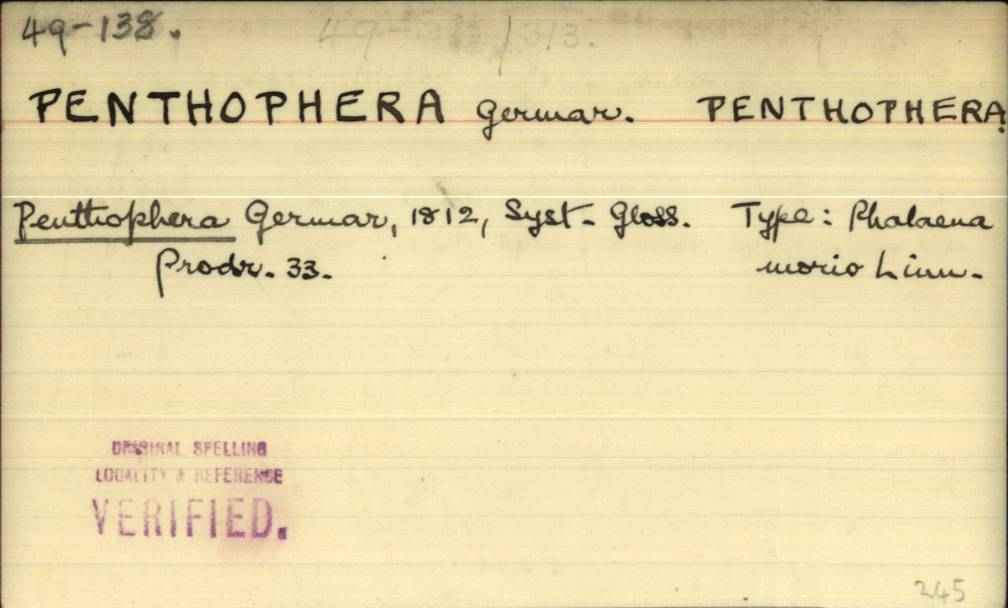 49-138.
PENTHOPHERA Germar. PENTHOPHERA.
Penthophera Germar, 1812, Syst- Gloss. Type: Phalaena
Prodr. 33. morio Linn.
ORIGINAL SPELLING
LOCALITY & REFERENCE
VERIFIED.
245